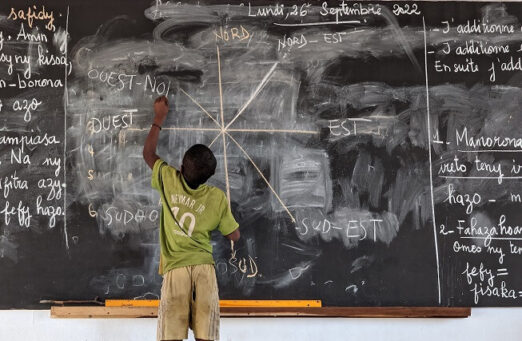 safidy.
y. Amin'y
sy ny
n-borona
azo
ampiasa
Na ny
azy.
fefy hazo.
Lundi, 26 Septembre 2022
NORD
NORD-EST
OUEST-NO
OUEST
EST
4
5
6
SUD
SUD-EST
SUD.
NEYMAR JR
10
- J'additionne
- J'additionne
Ensuite j'add
1. Manorona
ireto teny
hazo - m
2-
Omeo ny
fefy =
fisaka=